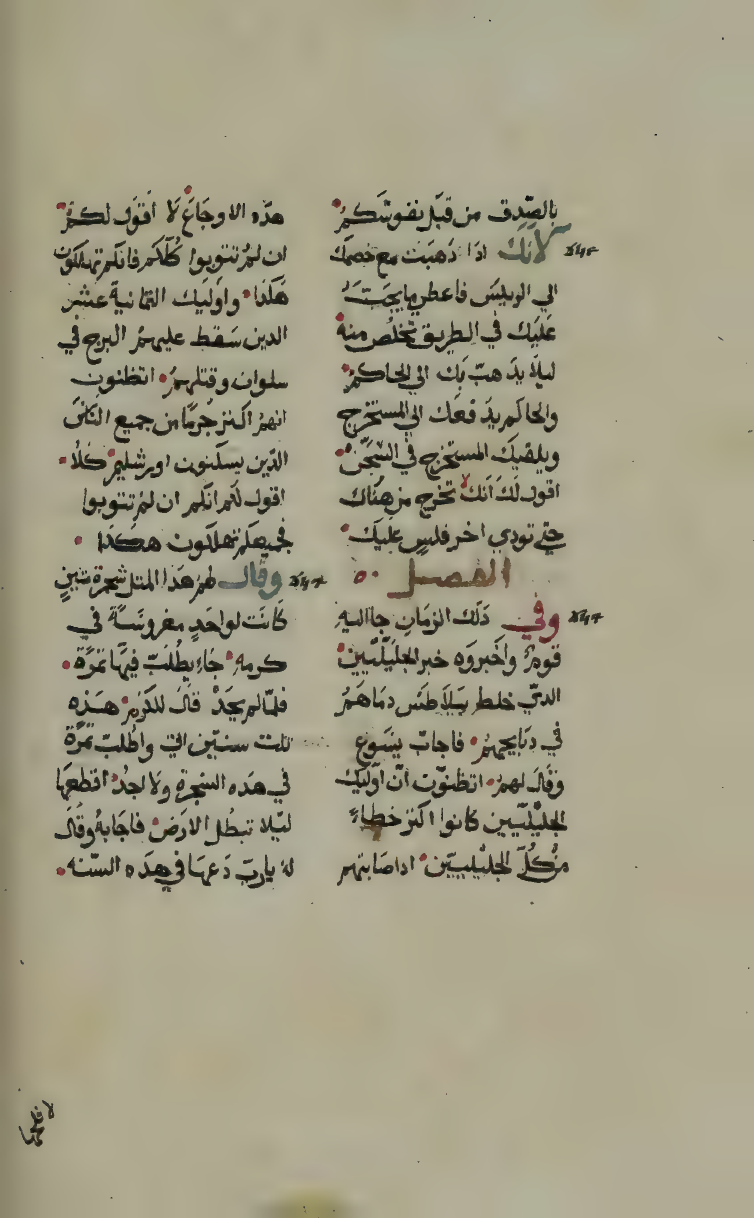 بالصّدق من قبل نفوسكم
لانك اذا ذهبت مع خصمك
الي الريس فاعطي ما يجب
عليك في الطريق تخلص منه
ليلا يذهب بك الي الحاكم
والحاكم يدفعك الي المستخرج
ويلقيك المستخرج في السجن
اقول لك انك لا تخرج من هناك
حتي تودي اخر فلس عليك
الفصل
وفي ذلك الزمان جا اليه
قوم واخبروه خبر الجليليين
الذي خلط بيلاطس دماهم
في دبايحهم فاجاب يسوع
وقال لهم اتظنون ان اوليك
الجليليين كانوا اكتر خطاء
من كل الجليليين اذ اصابتهم
هذه الاوجاع لا اقول لكم
ان لم تتوبوا كلكم فانكم تهلكون
هكذا واوليك التمانية عشر
الدين سقط عليهم البرج في
سلوان وقتلهم اتظنون
انهم اكتر جرما من جميع الناس
الدين يسكنون اورشليم كلا
اقول لكم انكم ان لم تتوبوا
فجميعكم تهلكون هكذا
وقال لهم هذا المتل شجرة تين
كانت لواحد مغروسة في
كرمه جاء يطلب فيها تمرة
فلما لم يجد قال للكرم هذه
تلت سنين اتي واطلب تمرة
في هده الشجرة ولا اجد اقطعها
ليلا تبطل الارض فاجابه وقال
له يارب دعها في هده السنه